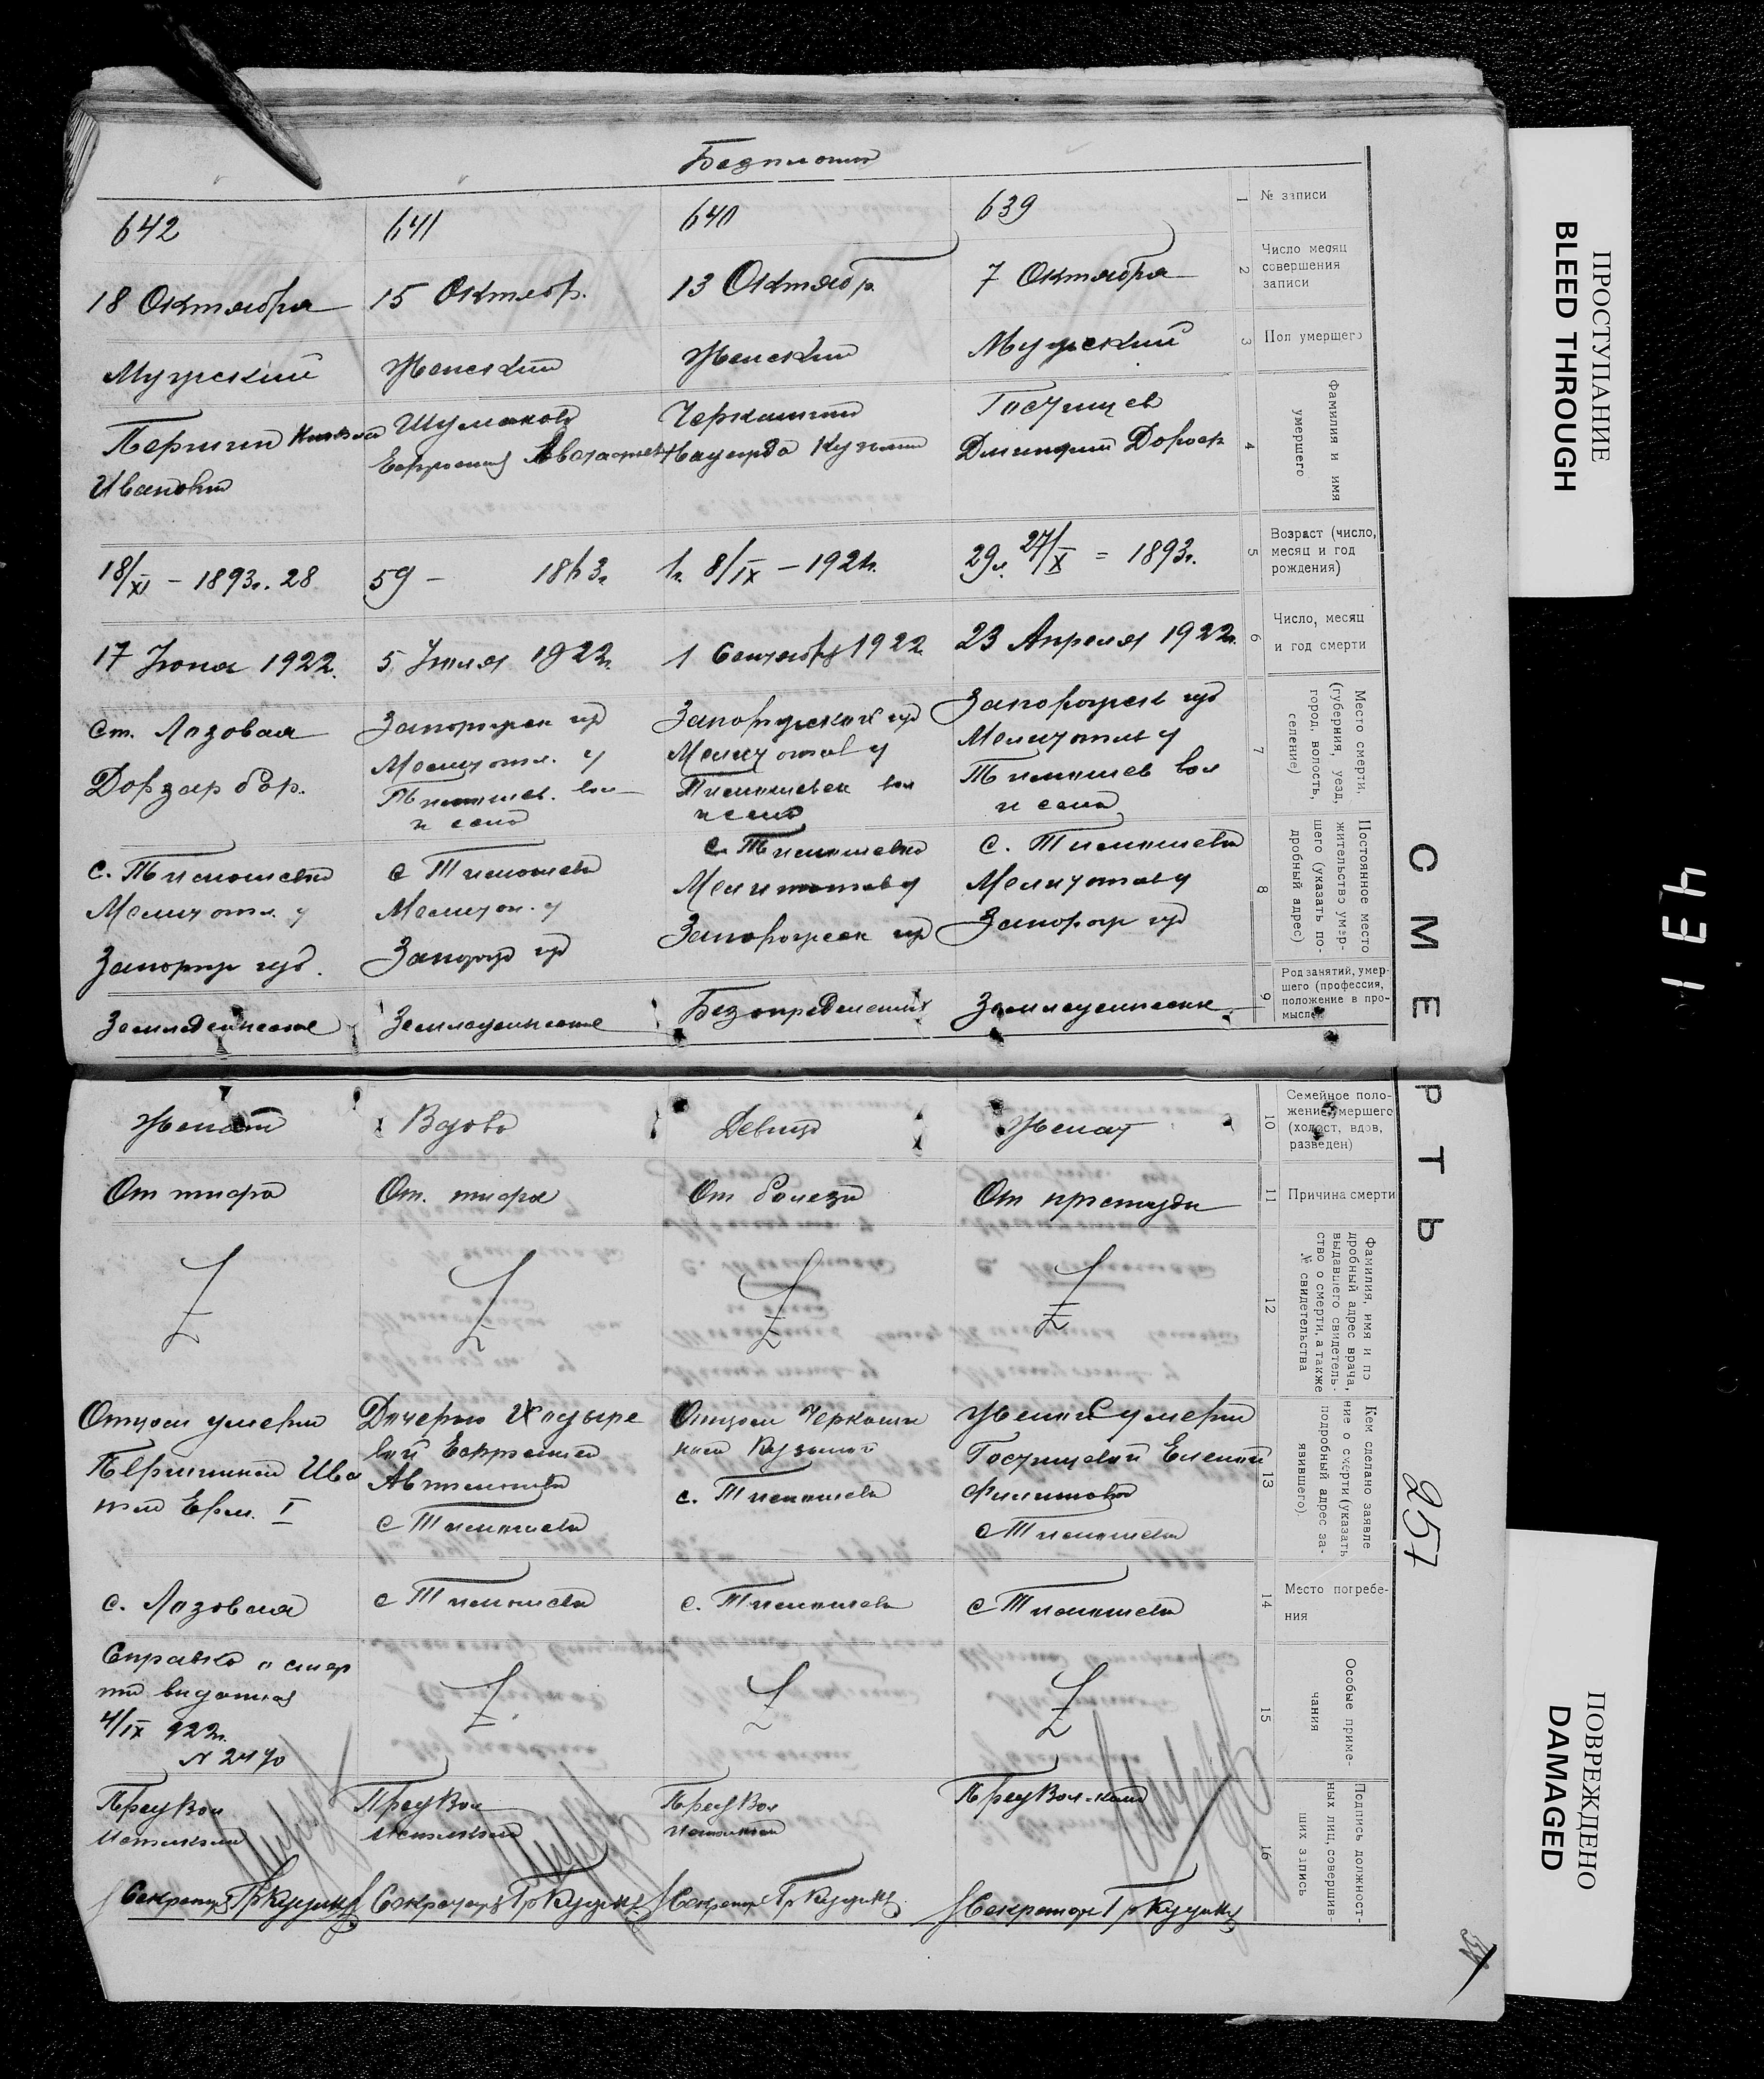 Безплатно
№ записи
1
639
640
641
642
Число месяц
совершения
записи
2
7 Октября
13 Октябр.
15 Октябр.
18 Октября
Пол умершего
3
Мужский
Женский
Женский
Мужский
Фамилия и имя
умершего
4
Гостищев
Дмитрий
Черкашин
Шумаков
Ефросиния
Першин
Иванович
Возраст (число,
месяц и год
рождения)
5
29 л. 27/X = 1893 г.
1 г. 8/IX – 1921 г.
59 – 1863 г.
18/XI – 1893 г. 28
Число, месяц
и год смерти
6
23 Апреля 1922 г.
1 Сентября 1922
5 Июля 1922 г.
17 Июня 1922.
Место смерти,
(губерния, уезд,
город, волость,
селение)
7
Запорожск губ
Мелитопль у
Тимошев вол
и село
Запорожской губ
Мелитопл у
Тимошевск вол
и село
Запорожск губ
Мелитопл. у
Тимошев. вол
и село
Ст. Лозовая
Постоянное место
жительство умер-
шего (указать по-
дробный адрес)
8
с. Тимошевка
Мелитопль у
Запорож губ
с. Тимошевка
Мелитополь у
Запорожск губ
с Тимошевка
Мелитоп. у
Запорож губ
с. Тимошевка
Мелитопл. у
Запорож губ.
Род занятий, умер-
шего (профессия,
положение в про-
мысле
9
Земледелческие
Без определения
Земледелческие
Земледелческие
СМЕРТЬ
Семейное поло-
жение умершего
(холост, вдов,
разведен)
10
Женат
Девица
Вдова
Женат
Причина смерти
11
От простуды
От болезн
От. тифа
От тифа
Фамилия, имя и по
дробный адрес врача,
выдавшего свидетель-
ство о смерти, а также
№ свидетельства
12
Z
Z
Z
Z
Кем сделано заявле
ние о смерти (указать
подробный адрес за-
явившего).
13
Женой умерш
Гостищевой Еленой
Филипповн
с Тимошевка
Отцом Черкаши
ным Кузьмой
с. Тимошевка
Дочерью
вой Ефросинией
с Тимошевка
Отцом умерш
Першиным Ива
ном Ерм. I
Место погребе-
ния
14
с Тимошевка
с. Тимошевка
с Тимошевка
с. Лозовая
Особые приме-
чания
15
Z
Z
Z
Справка о смер
ти виданная
4/IX 922 г.
N 2470
Подпись должност-
ных лиц, совершив-
ших запись
16
Пред Вол
Секретарь
Пред Вол
Исполком
Секретарь
Пред Вол
Исполком
Секретарь
Пред Вол
Исполком
Секретарь
257
431
ПРОСТУПАНИЕ
BLEED THROUGH
ПОВРЕЖДЕНО
DAMAGED